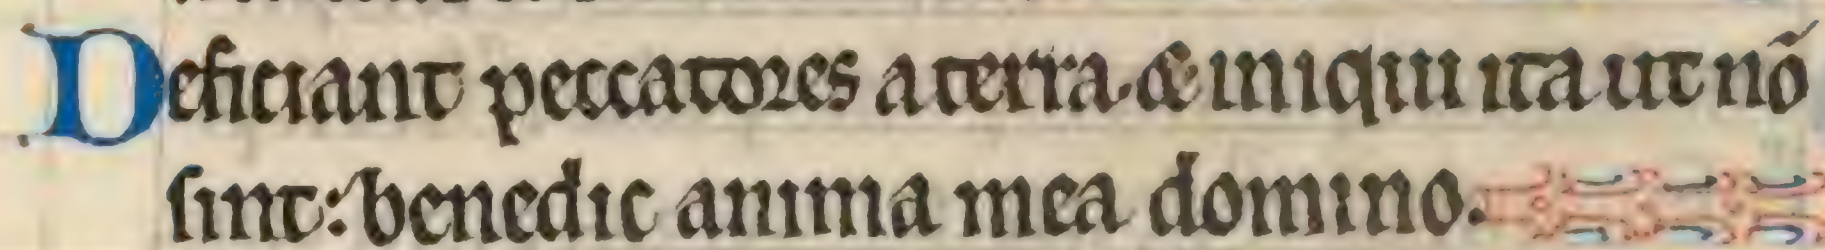 Deficiant peccatores a terra ⁊ iniqui ita ut nō
sint: benedic anima mea domino.